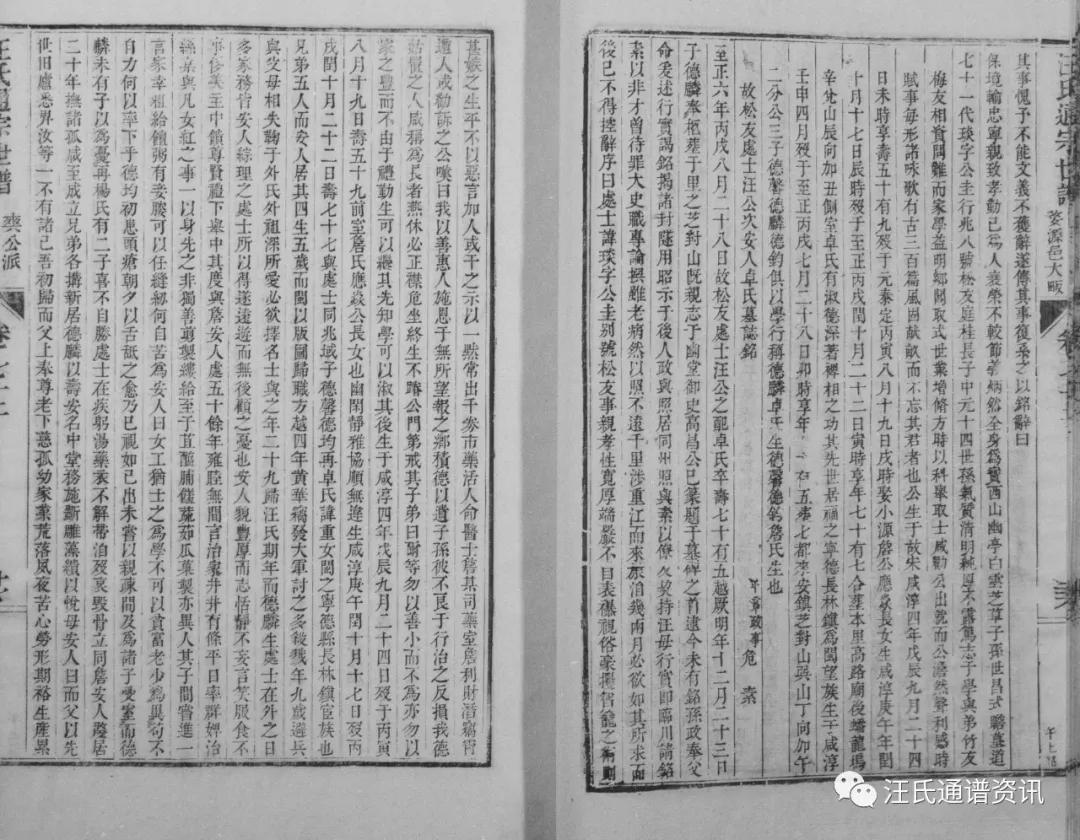 汪氏通宗世譜 婺源邑大畈
其事愧予不能文義不獲辭遂傳其事復系之以銘辭曰
保境輸忠寧親致孝勤已為人襄榮不較節善炳然全身為寶西山幽亭白雲芝草子孫世昌式瞻墓道
七十一代琰字公圭行兆八號松友庭桂長子中元十四世孫氣質清明純厚不露篤志于學與弟竹友
梅友相資問難而家學益明鄉閭取式世業增脩方時以科舉取士咸勸公出就而公澹然聲利感時
賦事毋形諸咏歌有古三百篇風由畎畝而不忘其君者也公生于故宋咸淳四年戊辰九月二十四
日未時享壽五十有九歿于元泰定丙寅八月十九日戌時娶小源詹公應泰長女生咸淳庚午年閏
十月十七日辰時歿于至正丙戌閏十月二十二日寅時享年七十有七合塟本里高路廟後蟠龍塢
辛兊山辰向加丑側室卓氏有淑德深著裨相之功其先世居福之寧德長林鎮為閩望族生于咸淳
壬申四月歿于至正丙戌七月二十八日卯時享年 五 七都來安鎮芝對山巽山丁向加午
二分公三子德馨德麟德鈞俱以學行稱德麟卓氏生德馨德鈞詹氏生也
故松友處士汪公次安人卓氏墓誌銘 平章政事危 素
至正六年丙戌八月二十八日故松友處士汪公之配卓氏卒壽七十有五越厥明年十二月二十三日
子德麟奉柩塟于里之芝對山既親志于幽堂御史高昌公已篆題于墓碑之首遠今未有銘孫政奉父
命爰述行實謁銘揭諸封隧用昭示于後人政與照居同州照與素以僚久契持汪母行實即臨川請銘
素以非才曾待罪大史職專論撰雖老病然以照不遠千里涉重江而來旅泊幾兩月必欲如其所求而
後已不得控辭序曰處士諱琰字公圭別號松友事親孝性寬厚端嚴不目表襮視俗藥攏智籠之術則
基嫉之生平不以惡言加人或干之示以一黙常出千劵市藥活人命醫士詹某司藥室詹利財潛竊背
遁人或勸訴之公嘆曰我以善惠人施恩于無所望報之鄉積德以遺子孫彼不艮于行治之反損我德
姑置之人咸稱為長者燕休必正襟危坐終生不蹐公門弟戒其子弟曰爾等勿以善小而不為亦勿以
家之豐而不由于禮勤生可以繼其先知學可以淑其後生于咸淳四年戊辰九月二十四日歿于丙寅
八月十九日壽五十九前室詹氏應焱公長女也幽閒靜雅協順無違生咸淳庚午閏十月十七日歿丙
戌閏十月二十二日壽七十七與處士同兆域子德馨德均再卓氏諱重女閩之寧德縣長林鎮宦族也
兄弟五人而安人居其四生五歲而閩以版圖歸職方越四年黃華竊發大軍討之多殺戮年九歲遭兵
與父母相失鞠于外氏外祖深所愛必欲擇名士與之年二十九歸汪氏期年而德麟生處士在外之日
多家務皆安人綜理之處士所以得遂遠遊而無後顧之憂也安人貌豐厚而志恬靜不妄言笑服食不
事侈美主中饋尊賢禮下與中其度與詹安人處五十餘年雍睦無間言治家井井有條平日率群婢治
絲枲與凡女紅之事一以身先之非獨善剪製縷給至于苴醢腩饈蔬茹瓜菓製亦異人其子間嘗進一
言家幸租給饘粥有妾媵可以任縫紉何自苦為安人曰女工猶士之為學不可以貴富老少為異苟不
自力何以率下乎德均初患頭瘡朝夕以舌舐之愈乃已視如已出未嘗以親疎間及為諸子受室而德
麟未有子以為憂再楊氏有二子喜不自勝處士在疾躬湯藥衣不解帶洎歿哀毀骨立同詹安人嫠居
二十年撫諸孤咸至成立兄弟各搆新居德麟以壽安名中堂務施斵雕藻繢以悅母安人曰而父以先
世旧廬悉畀汝等一不有諸己吾初歸而父上奉尊老下慈孤幼家業荒落夙夜苦心勞形期裕生產累
汪氏通宗世譜 爽公派
汪氏通谱资讯